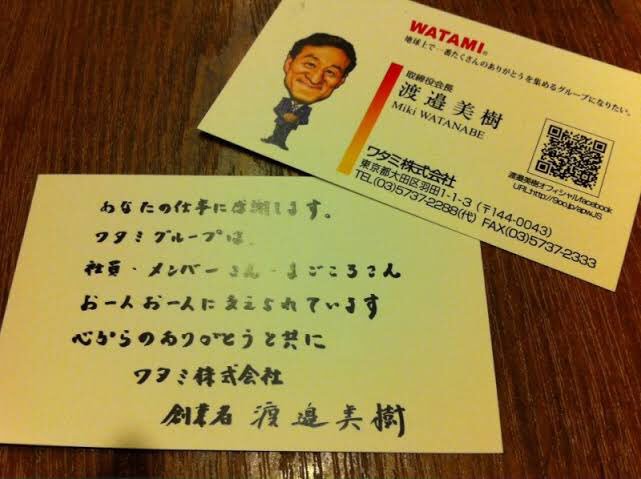 WATAMI®
地球上で一番たくさんのありがとうを集めるグループになりたい。
取締役会長
渡邉美樹
Miki WATANABE
ワタミ株式会社
東京都大田区羽田1-1-3 (〒144-0043)
TEL(03)5737-2288(代) FAX(03)5737-2333
渡邉美樹オフィシャルfacebook
URL:http://9oo.jp/apwJS
あなたの仕事に感謝します。
ワタミグループは、
社員・メンバーさん・まごころさん
お一人お一人に支えられています
心からのありがとうと共に
ワタミ株式会社
創業者 渡邉美樹